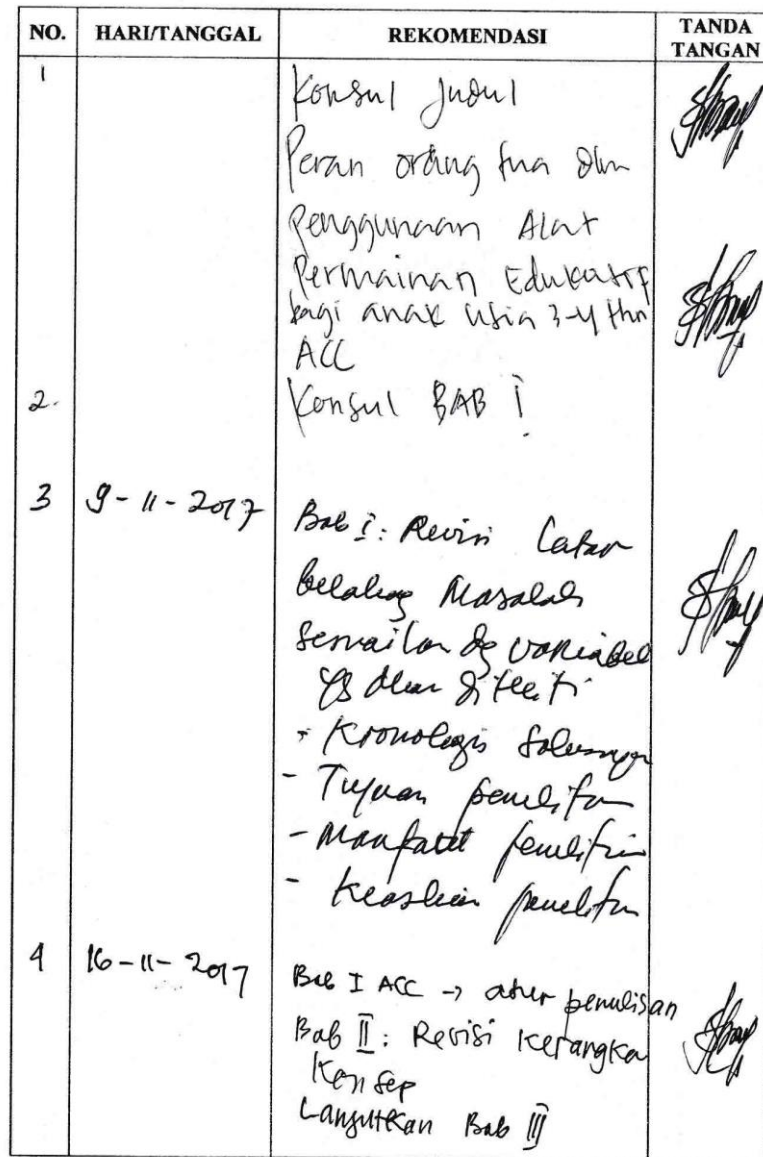 NO. HARI/TANGGAL REKOMENDASI TANDA TANGAN
1 Konsul Judul
Peran orang tua dlm
Penggunaan Alat
Permainan Edukatif
bagi anak usia 3-4 thn
ACC
2. Konsul BAB I
3 9-11-2017 Bab I: Revisi Latar
belakag Masalah
sesuaikan dg variabel
yg akan diteliti
- Kronologis
- Tujuan penelitan
- Manfaat penelitin
- Keaslian penelitan
4 16-11-2017 Bab I ACC → atur penulisan
Bab II: Revisi Kerangka
Konsep
Lanjutkan Bab III